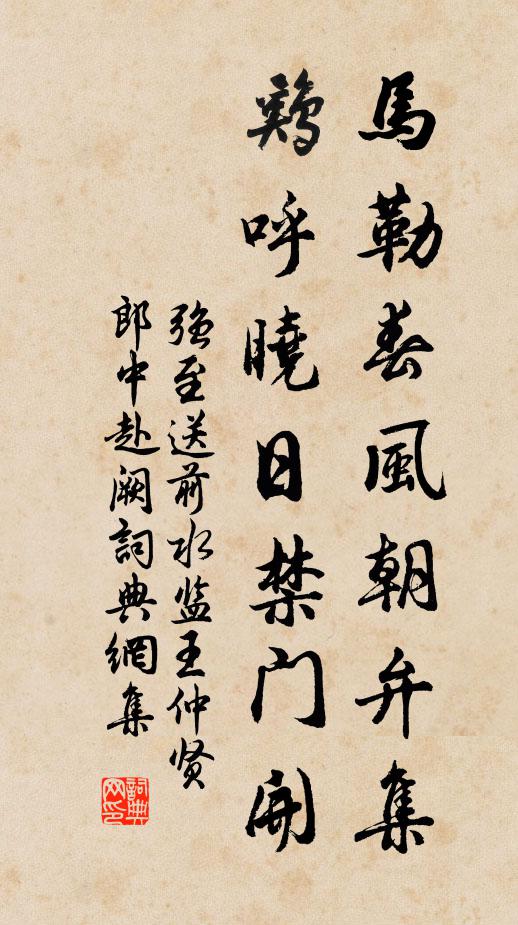 馬勒春風朝弁集
鷄呼曉日禁門開
强至送前水监王仲贤
郎中赴阙詞典網集
詞典网印